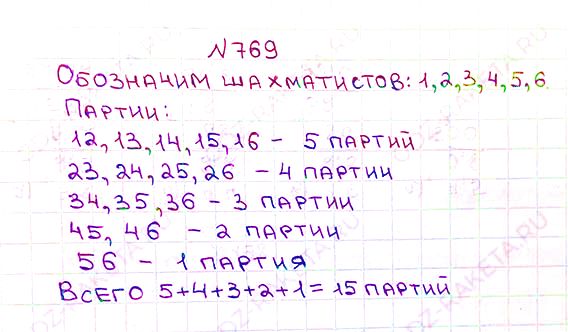 №769
Обозначим шахматистов: 1,2,3,4,5,6.
Партии:
12,13,14,15,16 - 5 партий
23,24,25,26 - 4 партии
34,35,36 - 3 партии
45,46 - 2 партии
56 - 1 партия
Всего 5+4+3+2+1=15 партий